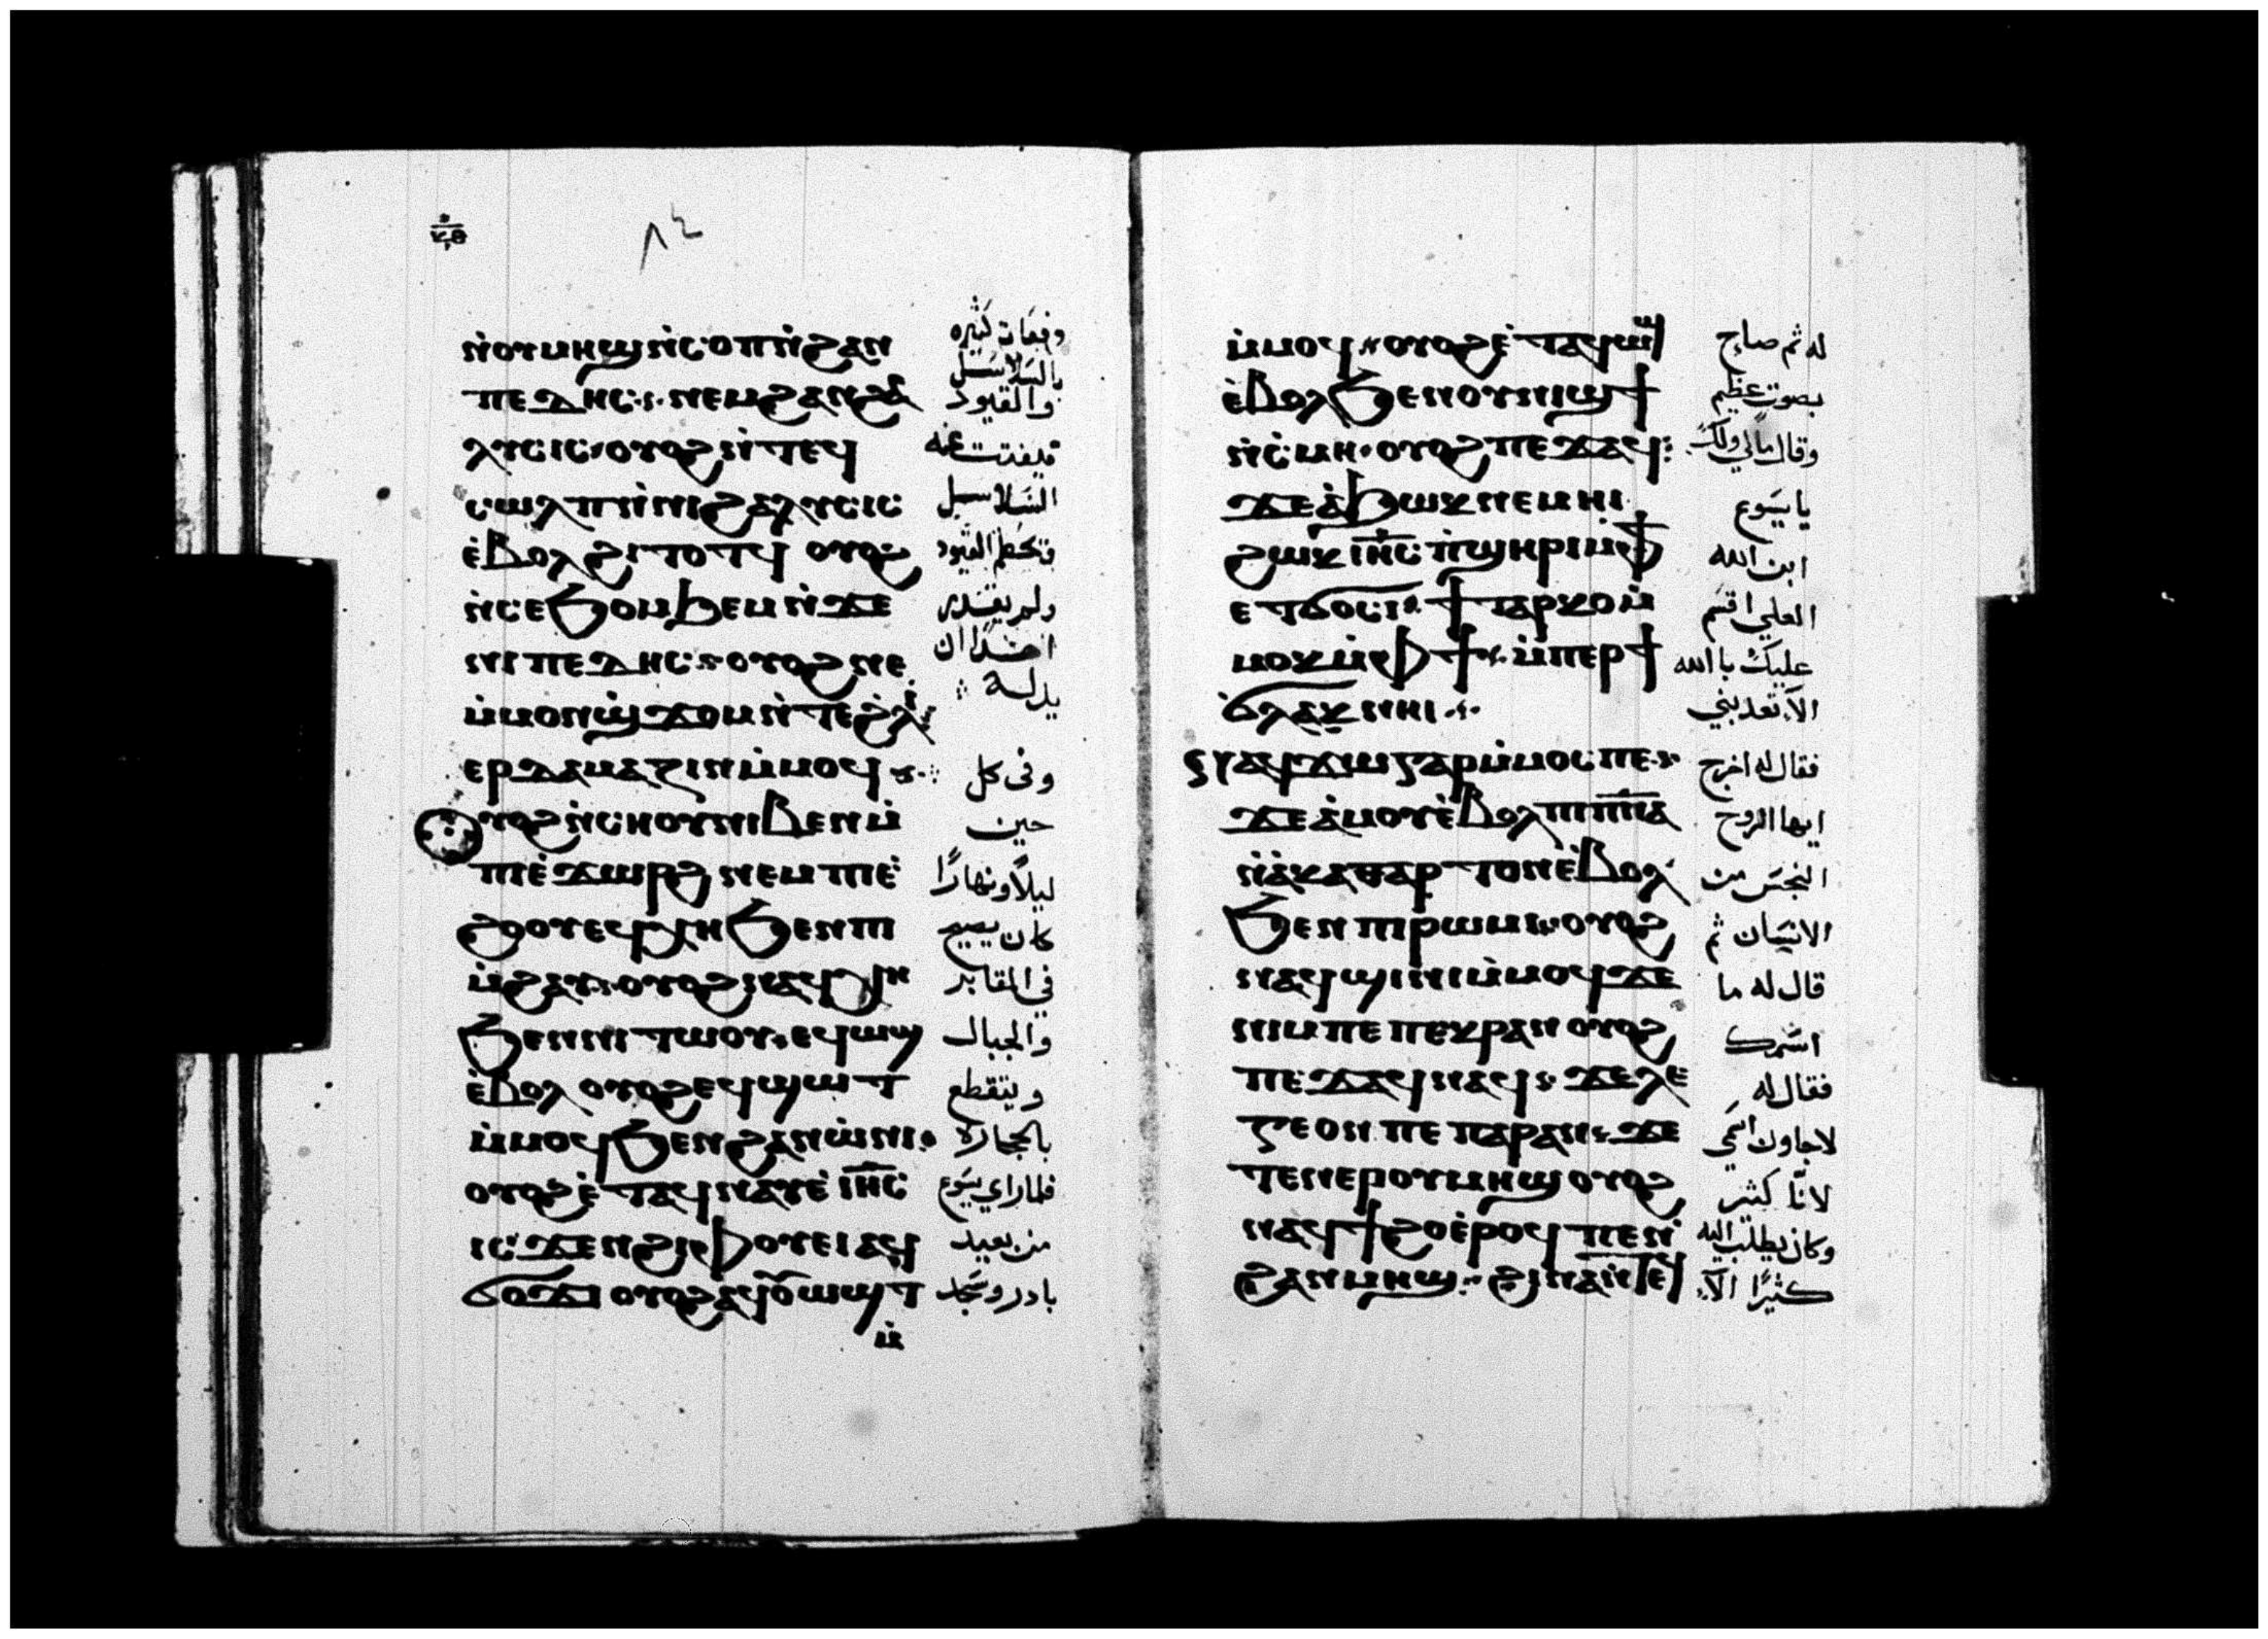 ٨٤
ⲛ̀ⲟⲩⲙⲏϣ ⲛ̀ⲥⲟⲡ ⲛ̀ϩⲁⲛ
ⲡⲉⲇⲏⲥ ⲛⲉⲙ ϩⲁⲛϩⲁ
ⲗⲩⲥⲓⲥ ⲟⲩⲟϩ ⲛ̀ⲧⲉϥ
ⲥⲱⲗⲡ ⲛ̀ⲛⲓϩⲁⲗⲩⲥⲓⲥ
ⲉ̀ⲃⲟⲗ ϩⲓⲧⲟⲧϥ ⲟⲩⲟϩ
ⲛ̀ⲥⲉϧⲟⲙϧⲉⲙ ⲛ̀ϫⲉ
ⲛⲓⲡⲉⲇⲏⲥ ⲟⲩⲟϩ ⲛⲉ
ⲙ̀ⲙⲟⲛ ϣϫⲟⲙ ⲛ̀ⲧⲉϩⲗⲓ
ⲉⲣⲇⲁⲙⲁⲍⲓⲛ ⲙ̀ⲙⲟϥ
ⲟⲩⲟϩ ⲛ̀ⲥⲏⲟⲩ ⲛⲓⲃⲉⲛ ⲙ̀
ⲡⲓⲉ̀ϫⲱⲣϩ ⲛⲉⲙ ⲡⲓⲉ̀
ϩⲟⲟⲩ ⲉϥⲭⲏ ϧⲉⲛ ⲛⲓ
ⲙ̀ϩⲁⲩ ⲟⲩⲟϩ ⲛⲁϥⲭⲏ
ϧⲉⲛ ⲛⲓⲧⲱⲟⲩ ⲉϥⲱϣ
ⲉ̀ⲃⲟⲗ ⲟⲩⲟϩ ⲉϥϣⲱⲧ
ⲙ̀ⲙⲟϥ ϧⲉⲛ ϩⲁⲛⲱ̀ⲛⲓ
ⲟⲩⲟϩ ⲉ̀ⲧⲁϥⲛⲁⲩ ⲉ̀ⲓⲏ̅ⲥ̅
ⲓⲥϫⲉⲛ ϩⲓ ⲫⲟⲩⲉⲓ ⲁϥ
ϭⲟϫⲓ ⲟⲩⲟϩ ⲁϥⲟⲩⲱϣⲧ
ⲙ̀
دفعات كثيره
بالسلاسل
والقيود
فيفتت عنه
السلاسل
وتحطم القيود
ولم يقدر
احدًا ان
يذله
وفى كل
حين
ليلاً ونهارًا
كان يصيح
في المقابر
والجبال
ويتقطع
بالحجارة
فلما راي يسوع
من بعيد
بادر وسجد
ⲙ̀ⲙⲟϥ ⲟⲩⲟϩ ⲉ̀ⲧⲁϥⲱϣ
ⲉ̀ⲃⲟⲗ ϧⲉⲛ ⲟⲩⲛⲓϣϯ
ⲛ̀ⲥⲙⲏ ⲟⲩⲟϩ ⲡⲉϫⲁϥ
ϫⲉ ⲁ̀ϧⲱⲕ ⲛⲉⲙⲏⲓ
ϩⲱⲕ ⲓⲏ̅ⲥ̅ ⲡ̀ϣⲏⲣⲓ ⲙ̀ⲫϯ
ⲉⲧϭⲟⲥⲓ ϯⲧⲁⲣⲕⲟ ⲙ̀
ⲙⲟⲕ ⲙ̀ⲫϯ ⲙ̀ⲡⲉⲣϯ
ϭⲗⲁⲕ ⲛⲏⲓ
ⲛⲁϥϫⲱ ⲅⲁⲣ ⲙ̀ⲙⲟⲥ ⲡⲉ
ϫⲉ ⲁ̀ⲙⲟⲩ ⲉ̀ⲃⲟⲗ ⲡⲓⲡ̅ⲛ̅ⲁ̅
ⲛ̀ⲁ̀ⲕⲁⲑⲁⲣⲧⲟⲛ ⲉ̀ⲃⲟⲗ
ϧⲉⲛ ⲡⲓⲣⲱⲙⲓ ⲟⲩⲟϩ
ⲛⲁϥϣⲓⲛⲓ ⲙ̀ⲙⲟϥ ϫⲉ
ⲛⲓⲙ ⲡⲉ ⲡⲉⲕⲣⲁⲛ ⲟⲩⲟϩ
ⲡⲉϫⲁϥ ⲛⲁϥ ϫⲉ ⲗⲉ
ⲅⲉⲱⲛ ⲡⲉ ⲡⲁⲣⲁⲛ ϫⲉ
ⲧⲉⲛⲉⲣ ⲟⲩⲙⲏϣ ⲟⲩⲟϩ
ⲛⲁϥϯϩⲟ ⲉ̀ⲣⲟϥ ⲡⲉ ⲛ̀
ϩⲁⲛⲙⲏϣ ϩⲓⲛⲁ ⲛ̀ⲧⲉϥ
له ثم صاح
بصوت عظيم
وقال مالي ولك
يا يسوع
ابن الله
العلي اقسم
عليك با الله
الا تعذبني
فقال له اخرج
ايها الروح
النجس من
الانسان ثم
قال له ما
اسمك
فقال له
لاجاون اسمي
لانّا كثير
وكان يطلب اليه
كثيرًا الا